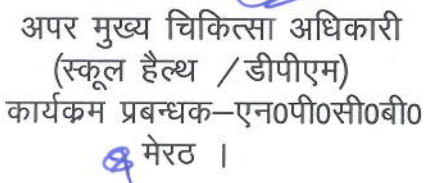 अपर मुख्य चिकित्सा अधिकारी
(स्कूल हैल्थ /डीपीएम)
कार्यक्रम प्रबन्धक–एन0पी0सी0बी0
मेरठ ।